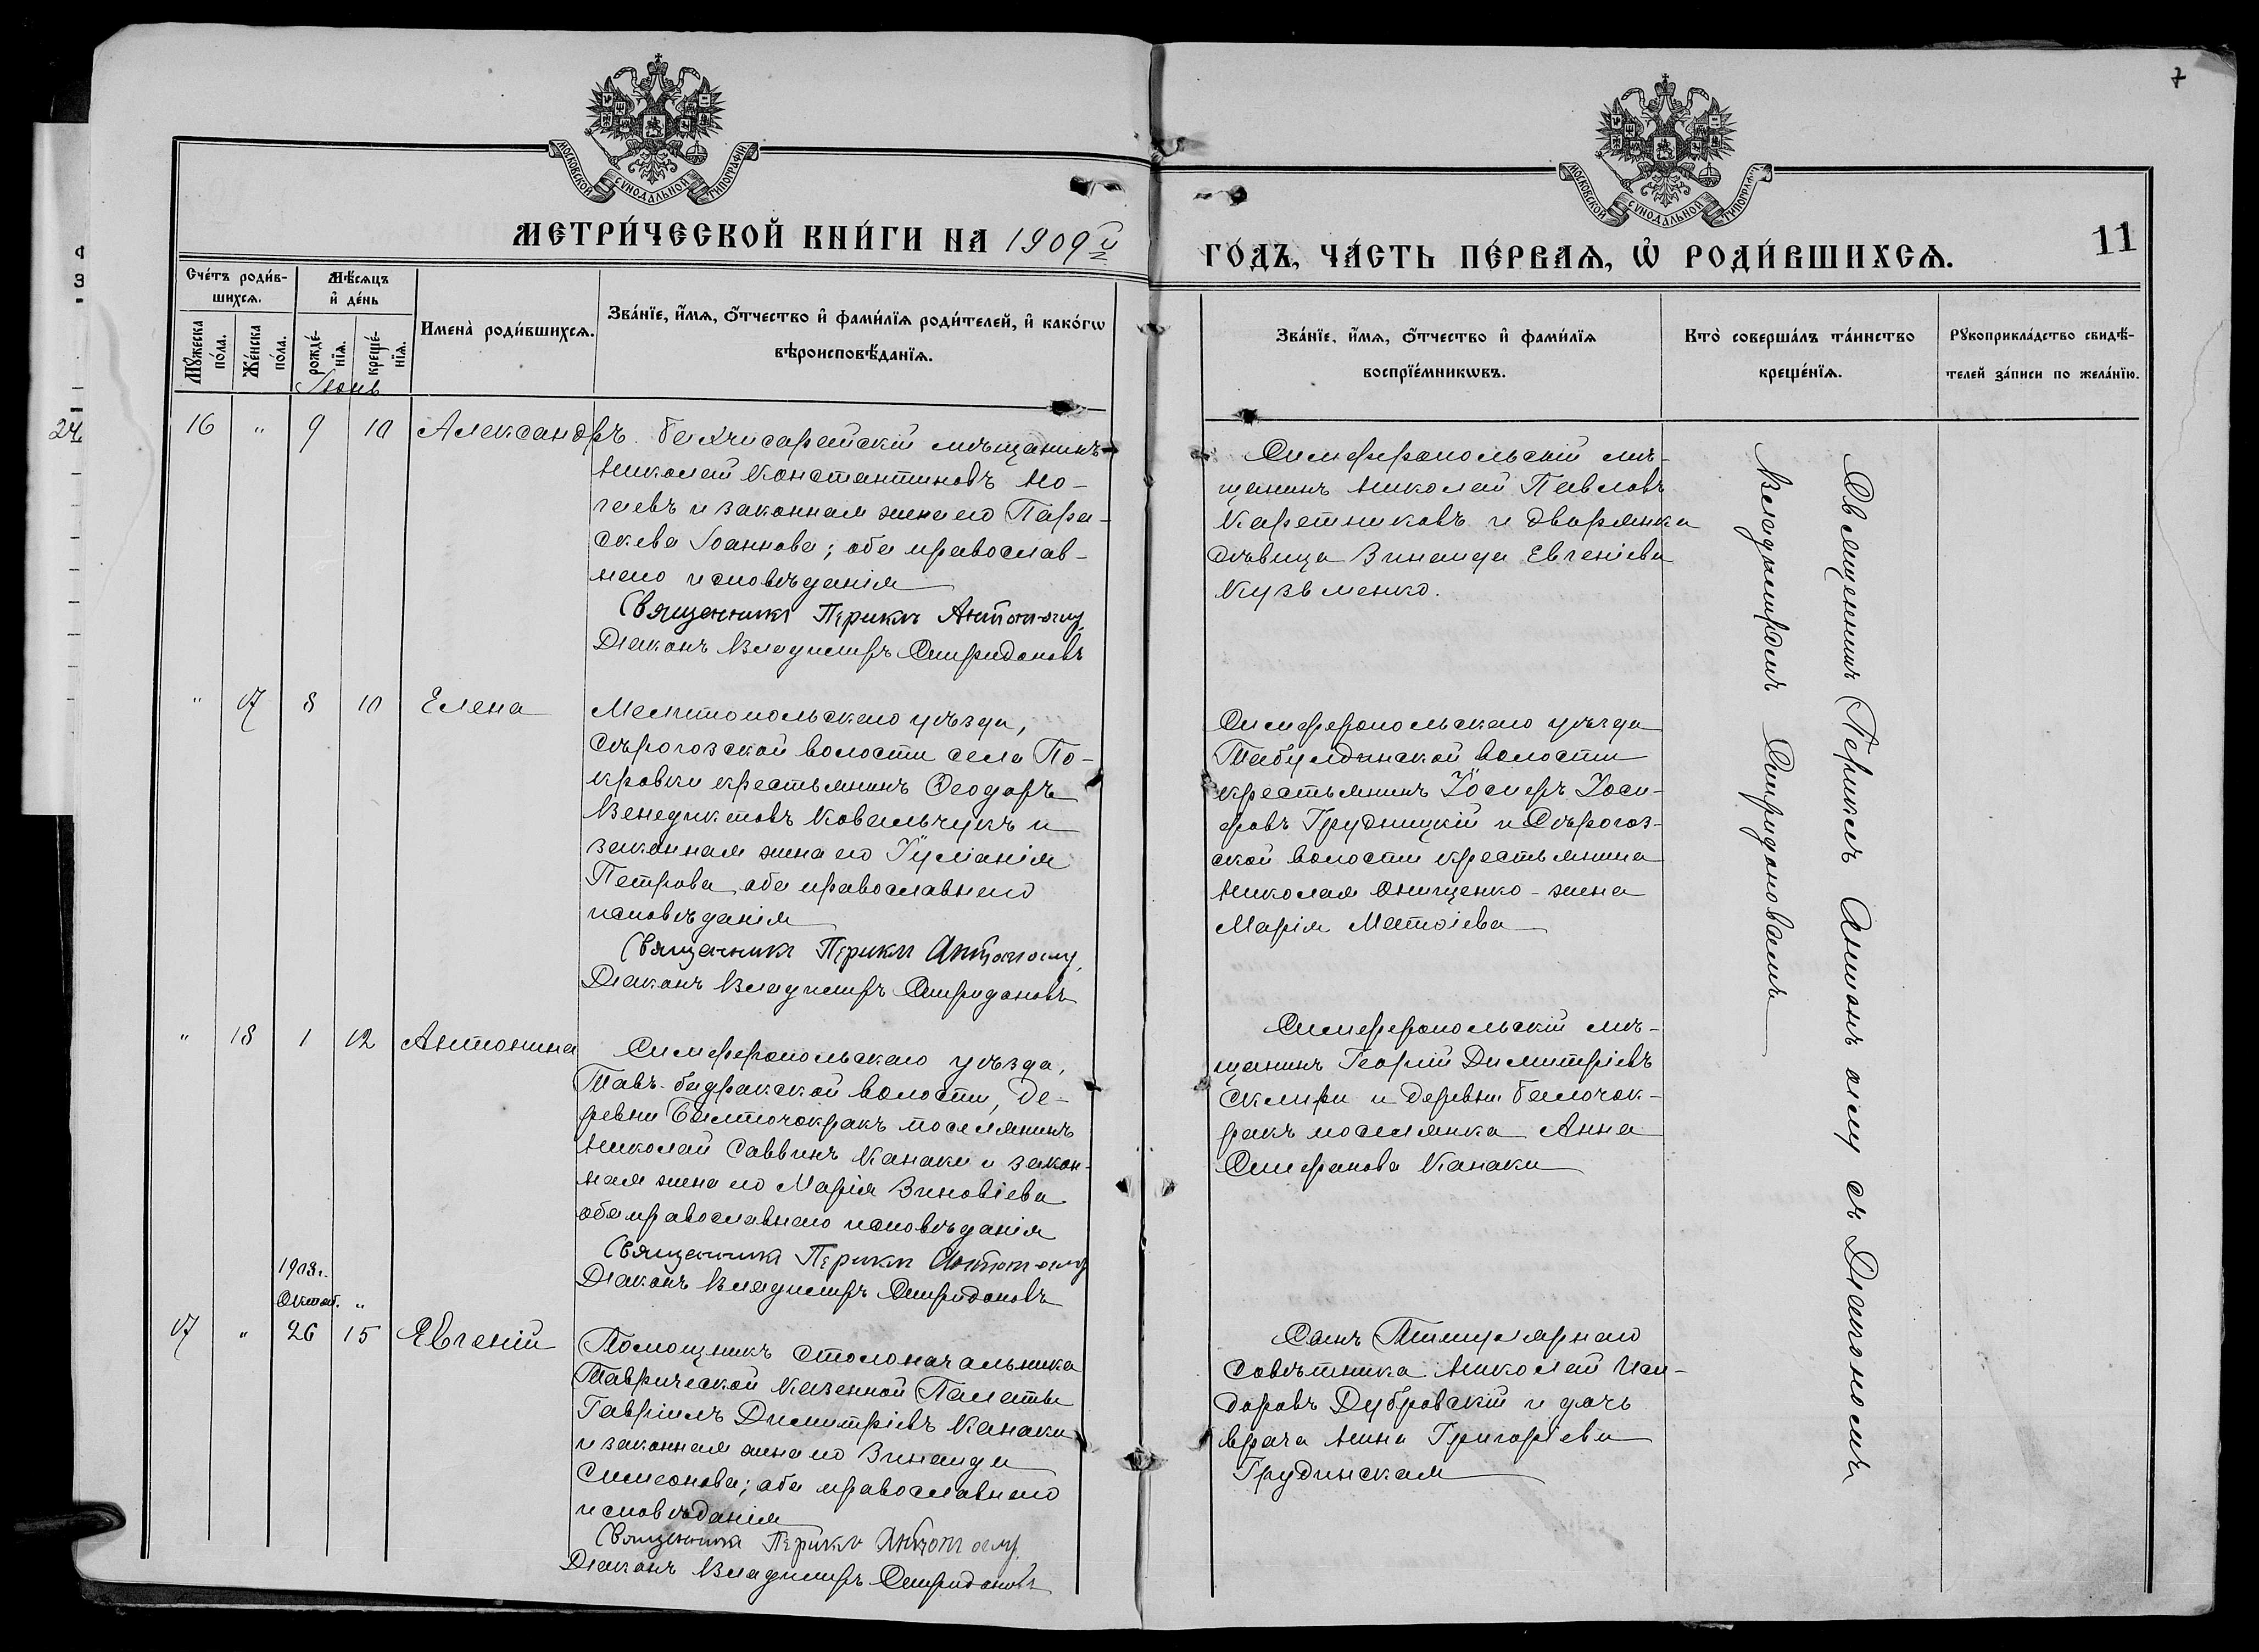 7
МОСКОВСКОЙ СѴНОДАЛЬНОЙ ТИПОГРАФІИ
МОСКОВСКОЙ СѴНОДАЛЬНОЙ ТИПОГРАФІИ
МЕТРИ́ЧЕСКОЙ КНИ́ГИ НА 1909й
ГО́ДЪ, ЧА́СТЬ ПЕ́РВАѦ, Ѡ РОДИ́ВШИХСѦ.
11
Сче́тъ роди́в-
шихсѧ.
Мꙋжеска по́ла.
Же́нска по́ла.
Мѣ́сѧцъ
и де́нь
рожде́-
нїѧ.
креще́-
нїѧ.
Имена̀ роди́вшихсѧ.
Зва́нїе, и́мѧ, ѻ́тчество и фами́лїѧ роди́телей, и како́гѡ
вѣроисповѣ́данїѧ.
Зва́нїе, и́мѧ, ѻ́тчество и фами́лїѧ
воспрїе́мникѡвъ.
Кто̀ соверша́лъ та́инство
креще́нїѧ.
Рꙋкоприкла́дство свидѣ́-
телей за́писи по жела́нїю.
Іюнь
24
16 " 9 10 Александръ. Бахчисарайскій мѣщанинъ
Николай Константиновъ Но-
гаевъ и законная жена его Пара-
скева Іоаннова; оба православ-
наго исповѣданія
Священникъ Периклъ Антоногλу
Діаконъ Владимиръ Спиридоновъ
Симферопольскій мѣ-
щанинъ Николай Павловъ
Каретниковъ и дворянка
дѣвица Зинаида Евгеніева
Кузьменко.
" 17 8 10 Елена
Мелитопольскаго уѣзда,
Сѣрогозской волости села По-
кровки крестьянинъ Ѳеодоръ
Венедиктовъ Ковальчукъ и
законная жена его Іуліанія
Петрова, оба православнаго
исповѣданія
Священникъ Периклъ
Діаконъ Владимиръ Спиридоновъ
Симферопольскаго уѣзда
Табулдинской волости
крестьянинъ Іосифъ Іоси-
фовъ Грудницкій и Сѣрогоз-
ской волости крестьянина
Николая Онищенко - жена
Марія Матѳіева
" 18 1 12 Антонина
Симферопольскаго уѣзда,
Тавъ-Бадракской волости, де-
ревни поселянинъ
Николай Саввинъ Канаки и закон-
ная жена его Марія Зиновіева
оба православнаго исповѣданія
Священникъ Периклъ
Діаконъ Владимиръ Спиридоновъ
Симферопольскій мѣ-
щанинъ Георгій Димитріевъ
Скляри и деревни
ракъ поселянка Анна
Стефанова Канаки
1908г.
Октяб. "
17 " 26 15 Евгеній
Помощникъ Столоначальника
Таврической Казенной Палаты
Гавріилъ Димитріевъ Канаки
и законная жена его Зинаида
Симеонова; оба православнаго
исповѣданія
Священникъ Периклъ
Діаконъ Владимиръ Спиридоновъ
Сынъ Титулярнаго
Совѣтника Николай Иси-
доровъ Дубровскій и дочь
врача Анна Григоріева
Грудинская
Священникъ Периклъ съ Діакономъ
Владимиромъ Спиридоновымъ